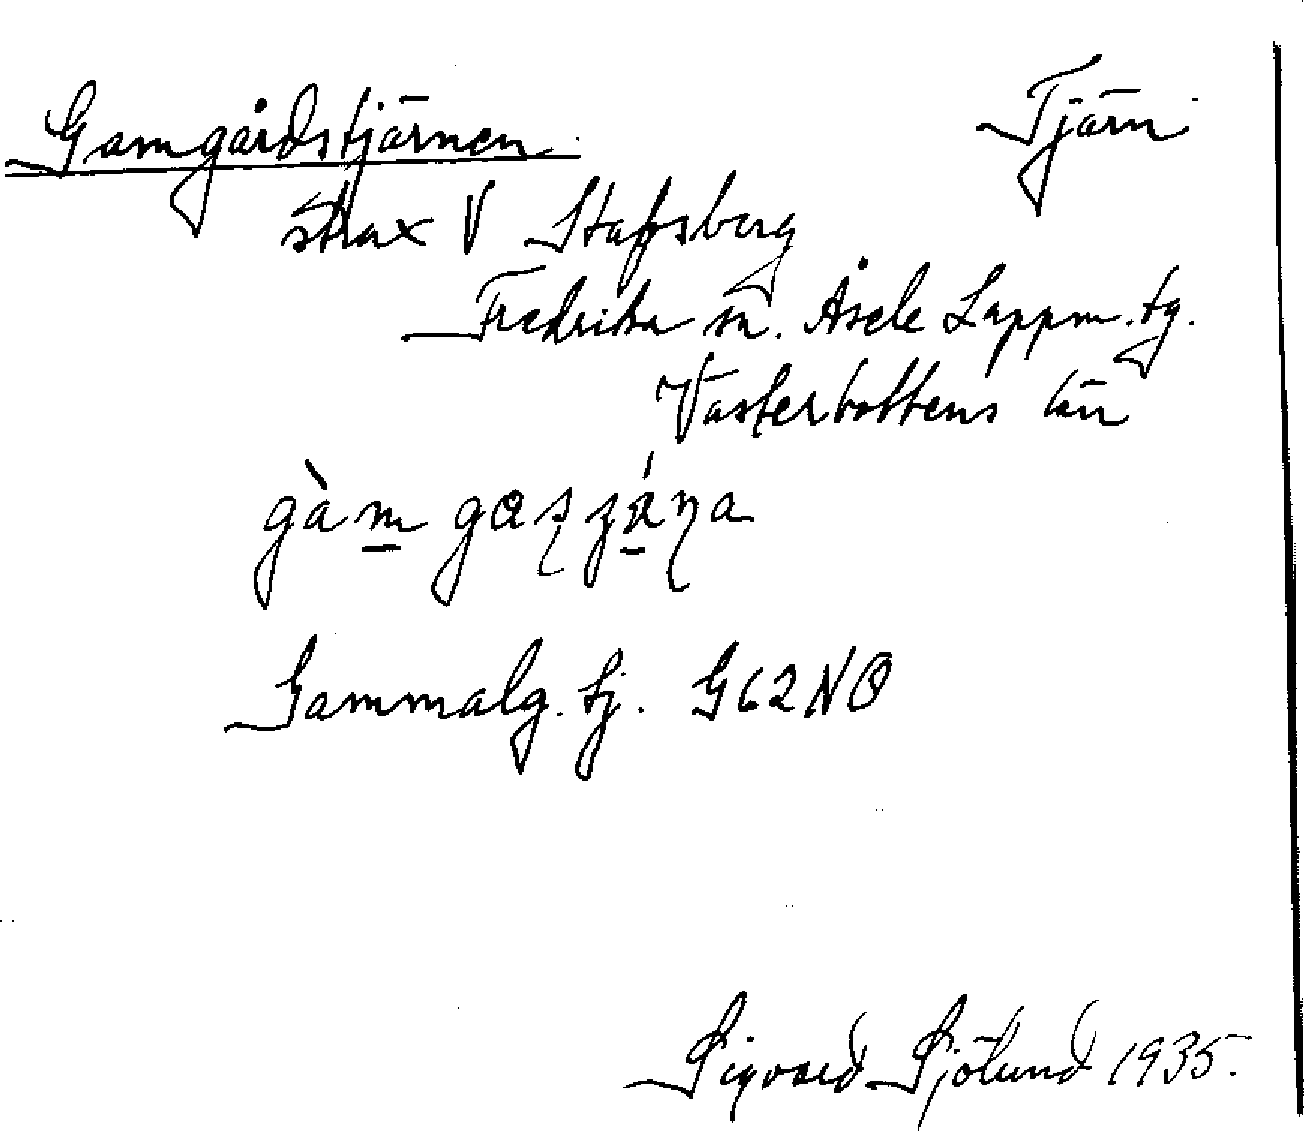 Gamgårdstjärnen. Tjärn
strax V Stafsberg
Fredrika sn. Åsele Lappm. tg.
Västerbottens län
Gammalg. tj. G62NO
Sigvard Sjölund 1935.